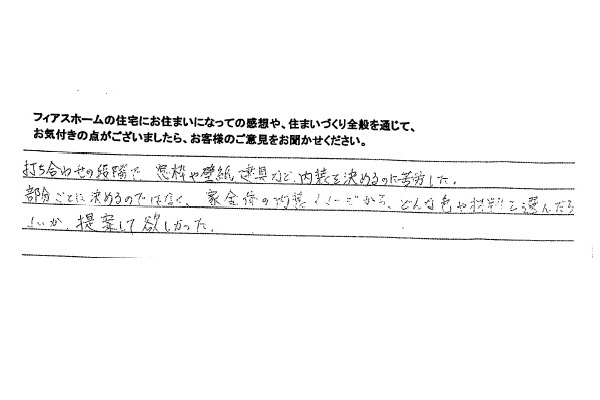 フィアスホームの住宅にお住まいになっての感想や、住まいづくり全般を通じて、
お気付きの点がございましたら、お客様のご意見をお聞かせください。
打ち合わせの段階で、窓枠や壁紙、建具など、内装を決めるのに苦労した。
部分ごとに決めるのではなく、家全体の内装イメージから、どんな色や材料を選んだら
いいか、提案して欲しかった。